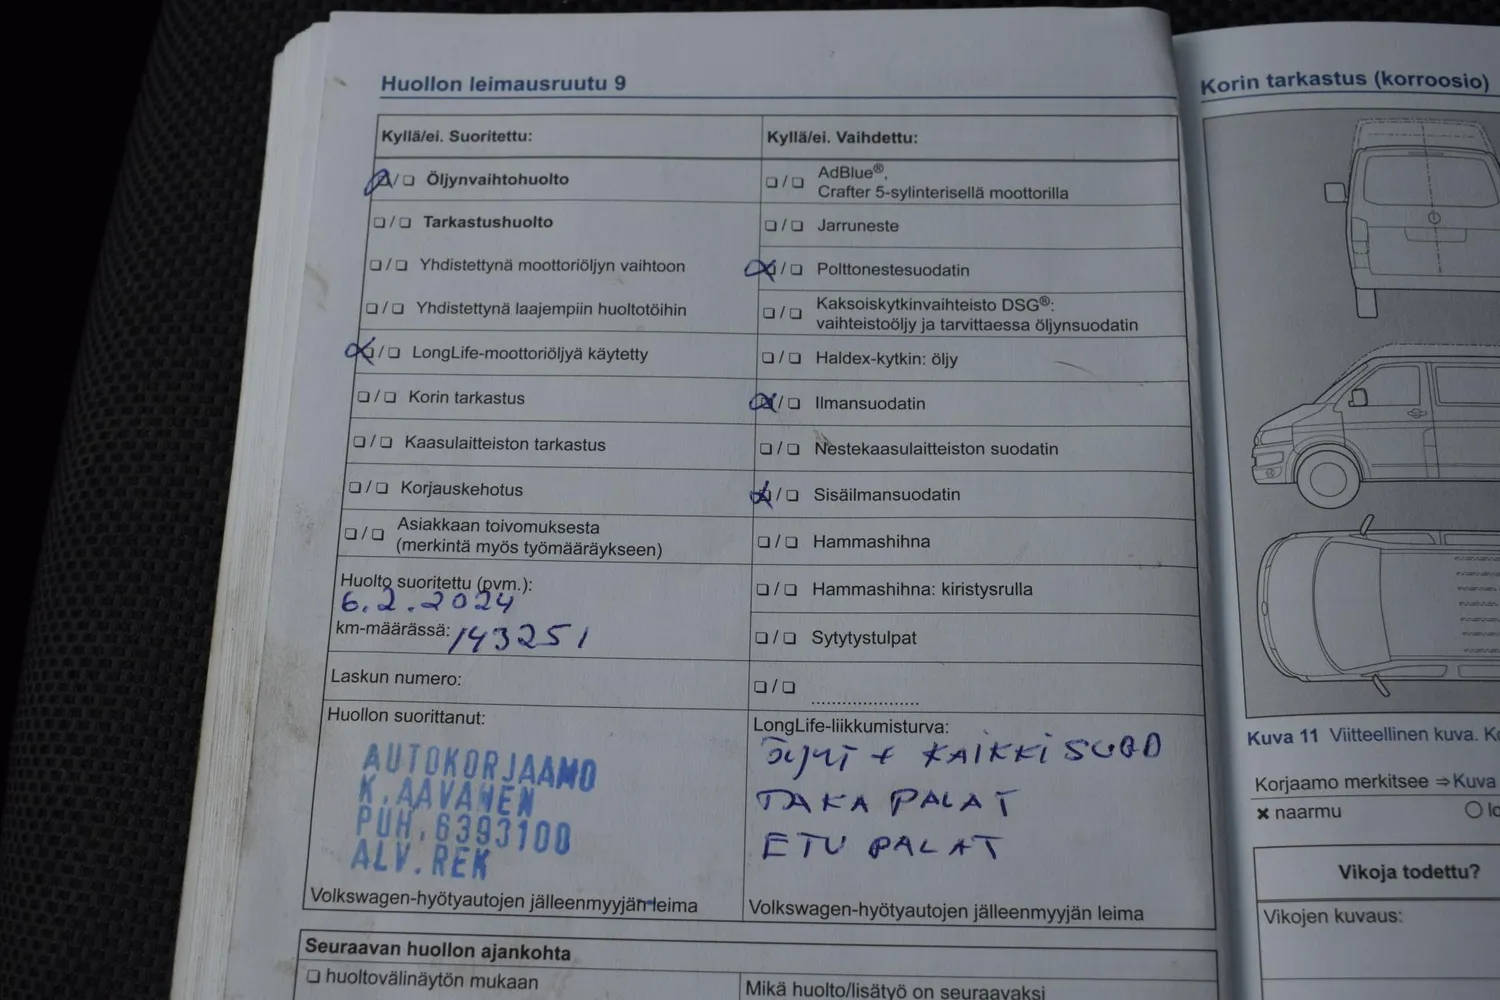 Huollon leimausruutu 9
Kyllä/ei. Suoritettu:
❏ / ❏ Öljynvaihtohuolto
❏ / ❏ Tarkastushuolto
❏ / ❏ Yhdistettynä moottoriöljyn vaihtoon
❏ / ❏ Yhdistettynä laajempiin huoltotöihin
❏ / ❏ LongLife-moottoriöljyä käytetty
❏ / ❏ Korin tarkastus
❏ / ❏ Kaasulaitteiston tarkastus
❏ / ❏ Korjauskehotus
❏ / ❏ Asiakkaan toivomuksesta
(merkintä myös työmääräykseen)
Huolto suoritettu (pvm.):
6.2.2024
km-määrässä: 143251
Laskun numero:
Huollon suorittanut:
AUTOKORJAAMO
K.AAVANEN
PUH.6393100
ALV.REK
Volkswagen-hyötyautojen jälleenmyyjän leima
Kyllä/ei. Vaihdettu:
❏ / ❏ AdBlue®,
Crafter 5-sylinterisellä moottorilla
❏ / ❏ Jarruneste
❏ / ❏ Polttonestesuodatin
❏ / ❏ Kaksoiskytkinvaihteisto DSG®:
vaihteistoöljy ja tarvittaessa öljynsuodatin
❏ / ❏ Haldex-kytkin: öljy
❏ / ❏ Ilmansuodatin
❏ / ❏ Nestekaasulaitteiston suodatin
❏ / ❏ Sisäilmansuodatin
❏ / ❏ Hammashihna
❏ / ❏ Hammashihna: kiristysrulla
❏ / ❏ Sytytystulpat
❏ / ❏ ....................
LongLife-liikkumisturva:
ÖljYT + KAIKKI SUOD
TAKA PALAT
ETU PALAT
Volkswagen-hyötyautojen jälleenmyyjän leima
Seuraavan huollon ajankohta
❏ huoltovälinäytön mukaan
Mikä huolto/lisätyö on seuraavaksi
Korin tarkastus (korroosio)
Kuva 11 Viitteellinen kuva.
Korjaamo merkitsee ⇒ Kuva
✖ naarmu
Vikoja todettu?
Vikojen kuvaus: